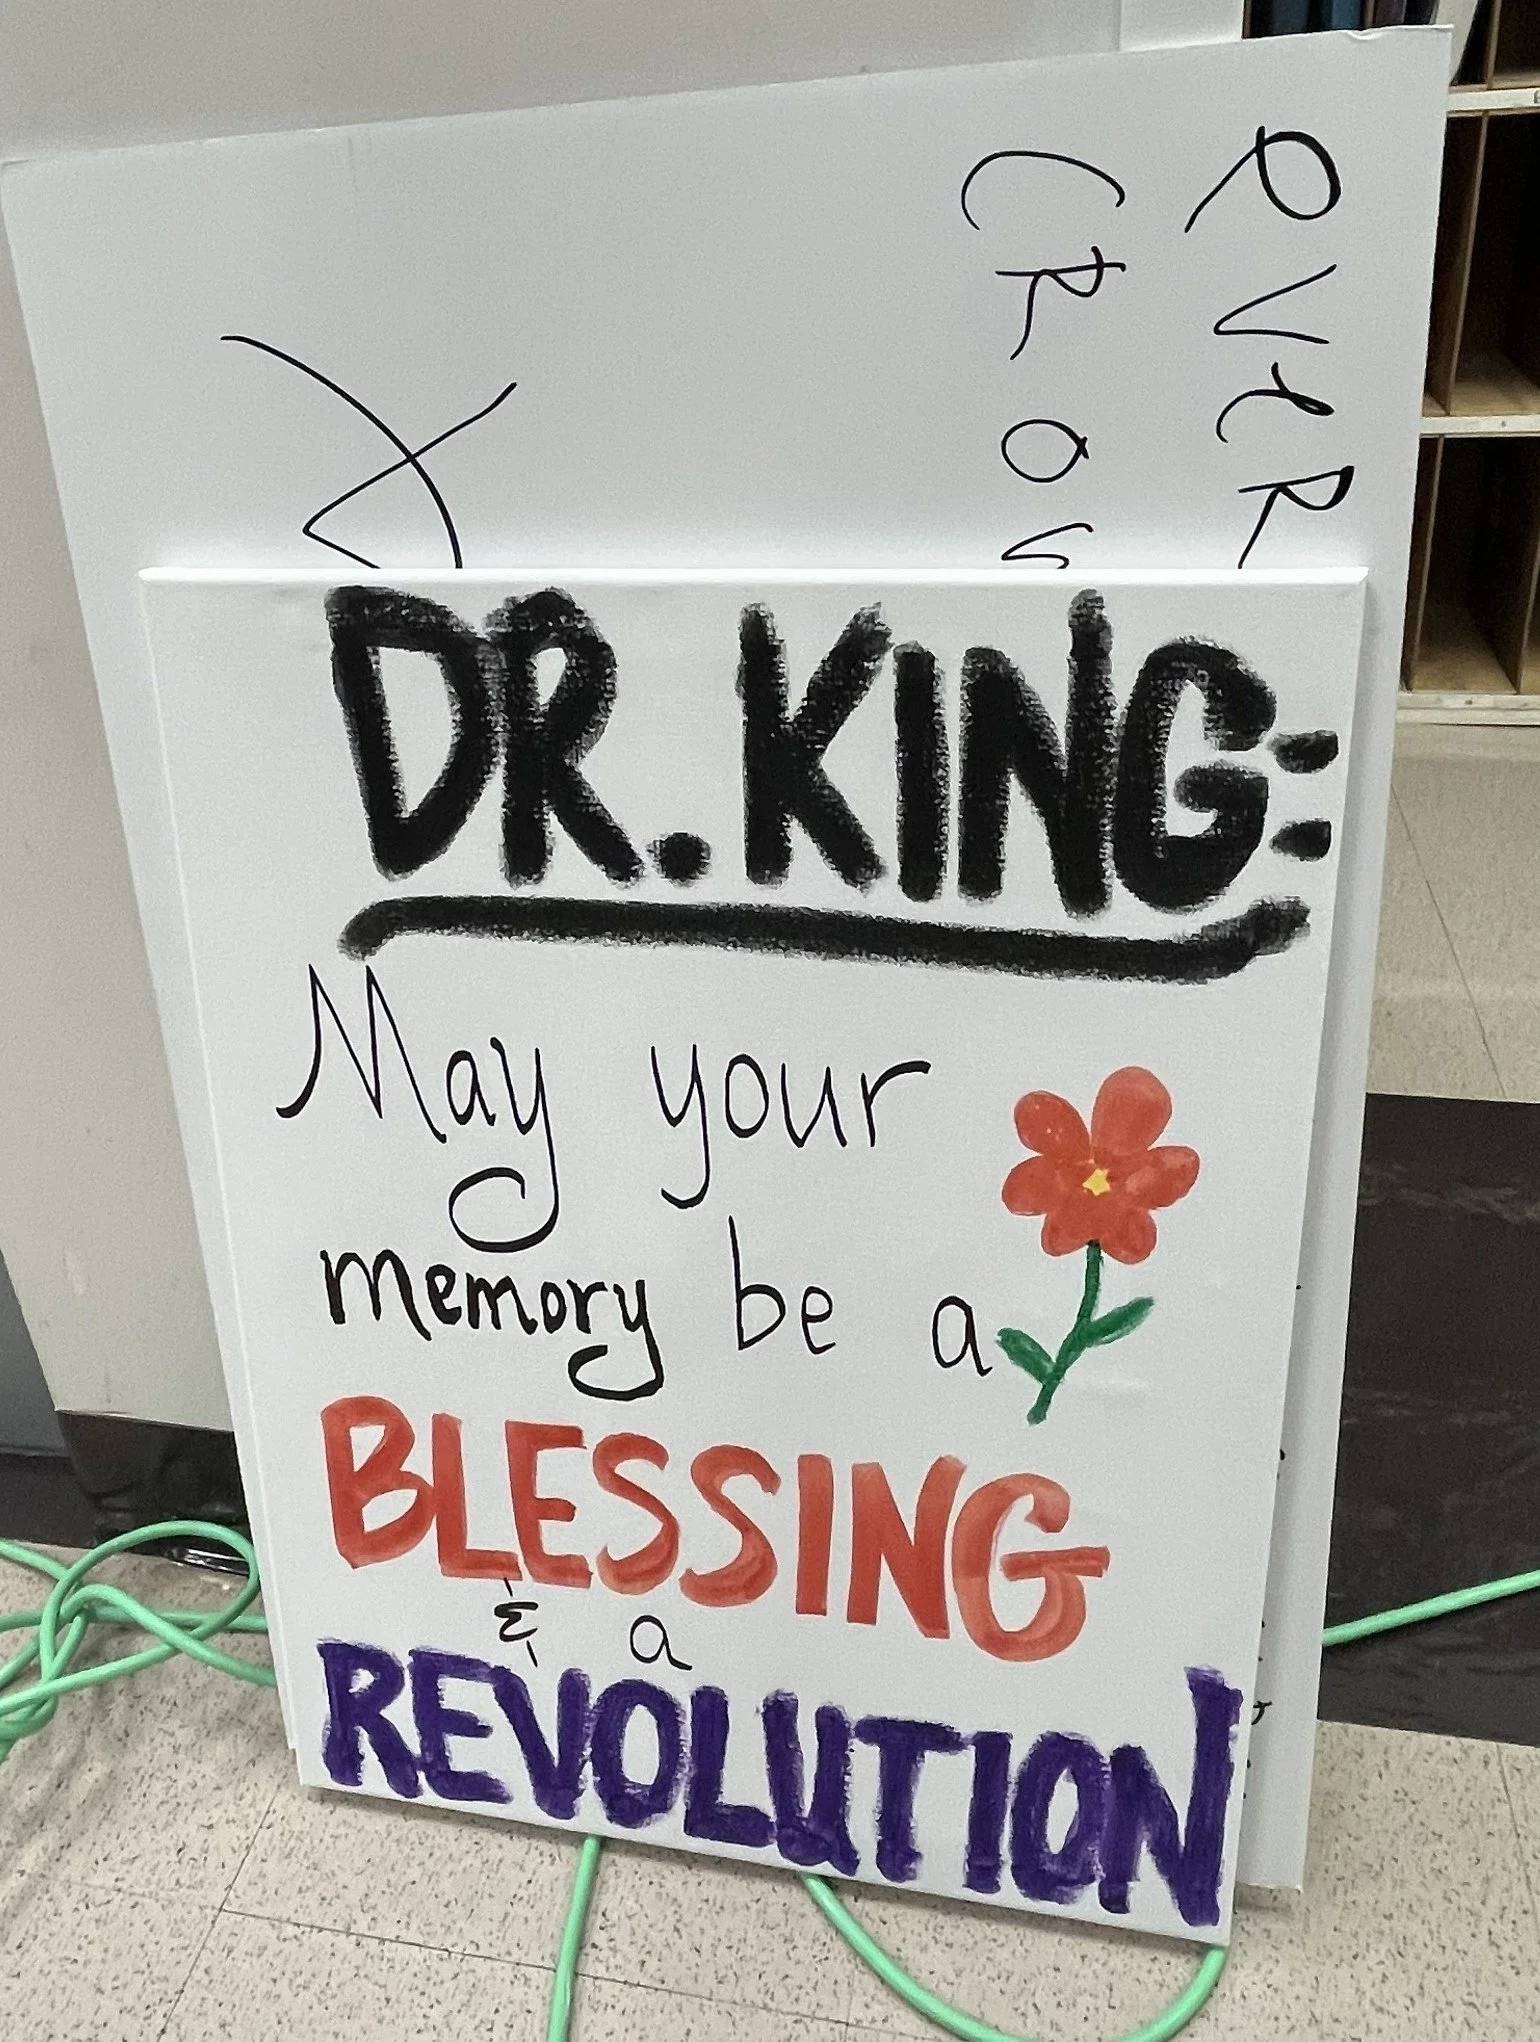 DR. KING:
May your
memory be a
BLESSING
& a
REVOLUTION